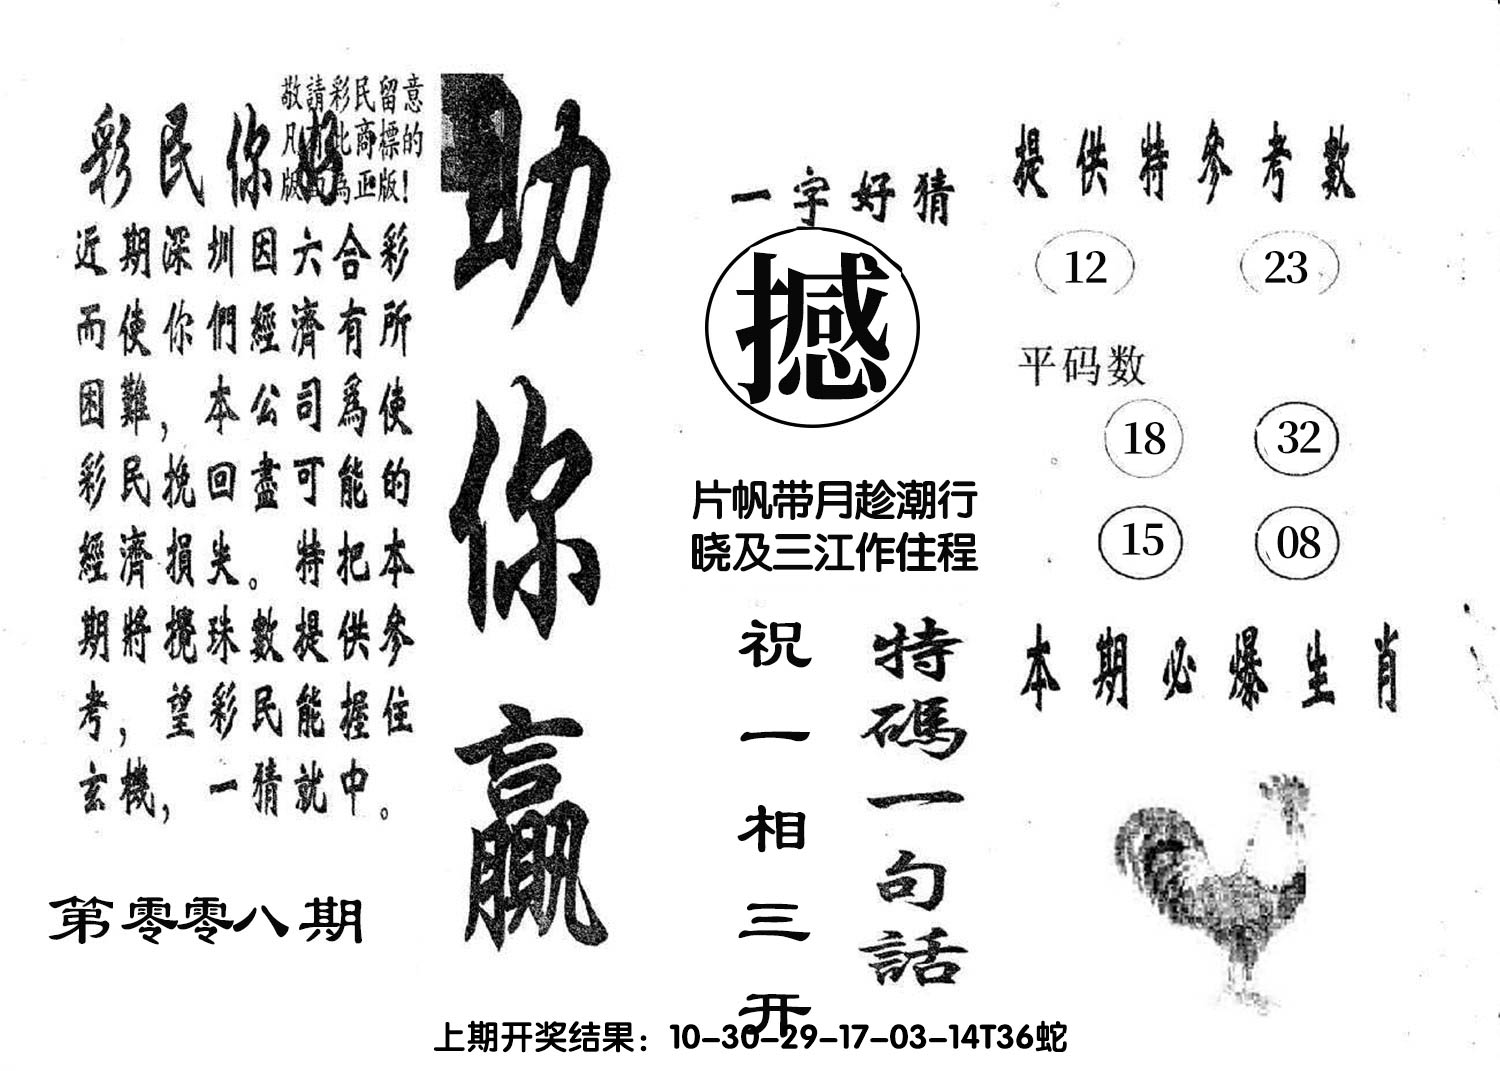 敬請彩民留意
凡有此商標的
版面為正版！
彩民你好
近期深圳因六合彩
而使你們經濟有所
困難，本公司爲使
彩民挽回盡可能的
經濟損失。特把本
期將攪珠數提供參
考，望彩民能握住
玄機，一猜就中。
第零零八期
助你贏
一字好猜
撼
片帆带月趁潮行
晓及三江作住程
特碼一句話
祝一相三开
提供特參考數
12 23
平码数
18 32
15 08
本期必爆生肖
上期开奖结果：10-30-29-17-03-14T36蛇